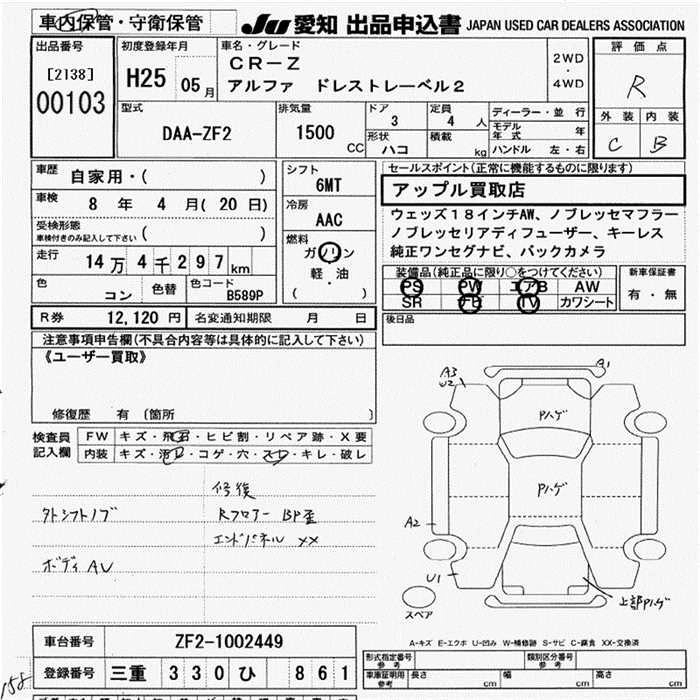 車内保管・守衛保管
JU 愛知 出品申込書 JAPAN USED CAR DEALERS ASSOCIATION
出品番号
[2138]
00103
初度登録年月
H25 05月
車名・グレード
CR-Z
アルファ ドレストレーベル2
2WD
・
4WD
評価点
R
外装 内装
C B
型式
DAA-ZF2
排気量
1500
CC
ドア
3
定員
4 人
形状
ハコ
積載
kg
ディーラー・並行
モデル
年式 年
ハンドル 左・右
車歴
自家用・( )
車検
8 年 4 月( 20 日)
受検形態
車検付きのみ記入して下さい ( )
走行
14万4千297km
色
コン
色替
色コード
B589P
シフト
6MT
冷房
AAC
燃料
ガソリン
軽・油
( )
セールスポイント(正常に機能するものに限ります)
アップル買取店
ウェッズ18インチAW、ノブレッセマフラー
ノブレッセリアディフューザー、キーレス
純正ワンセグナビ、バックカメラ
装備品(純正品に限り○をつけてください)
PS PW エアB AW
SR ナビ TV カワシート
新車保証書
有・無
R券 12,120 円 名変通知期限 月 日
後日品
注意事項申告欄(不具合内容等は具体的に記入して下さい)
《ユーザー買取》
修復歴 有 〔箇所 〕
検査員
記入欄
FW キズ・飛石・ヒビ割・リペア跡・X要
内装 キズ・汚れ・コゲ・穴・スレ・キレ・破レ
修復
外シフトノブ
Rフロアー BP歪
エンドパネル XX
ボディAU
A3
U2
A1
Pハゲ
Pハゲ
A2
U1
上部Pハゲ
スペア
A-キズ E-エクボ U-凹み W-補修跡 S-サビ C-腐食 XX-交換済
車台番号 ZF2-1002449
登録番号 三重 330 ひ 861
型式指定番号
参考
類別区分番号
参考
車庫証明用
参考
長さ cm
幅 cm
高さ cm
158